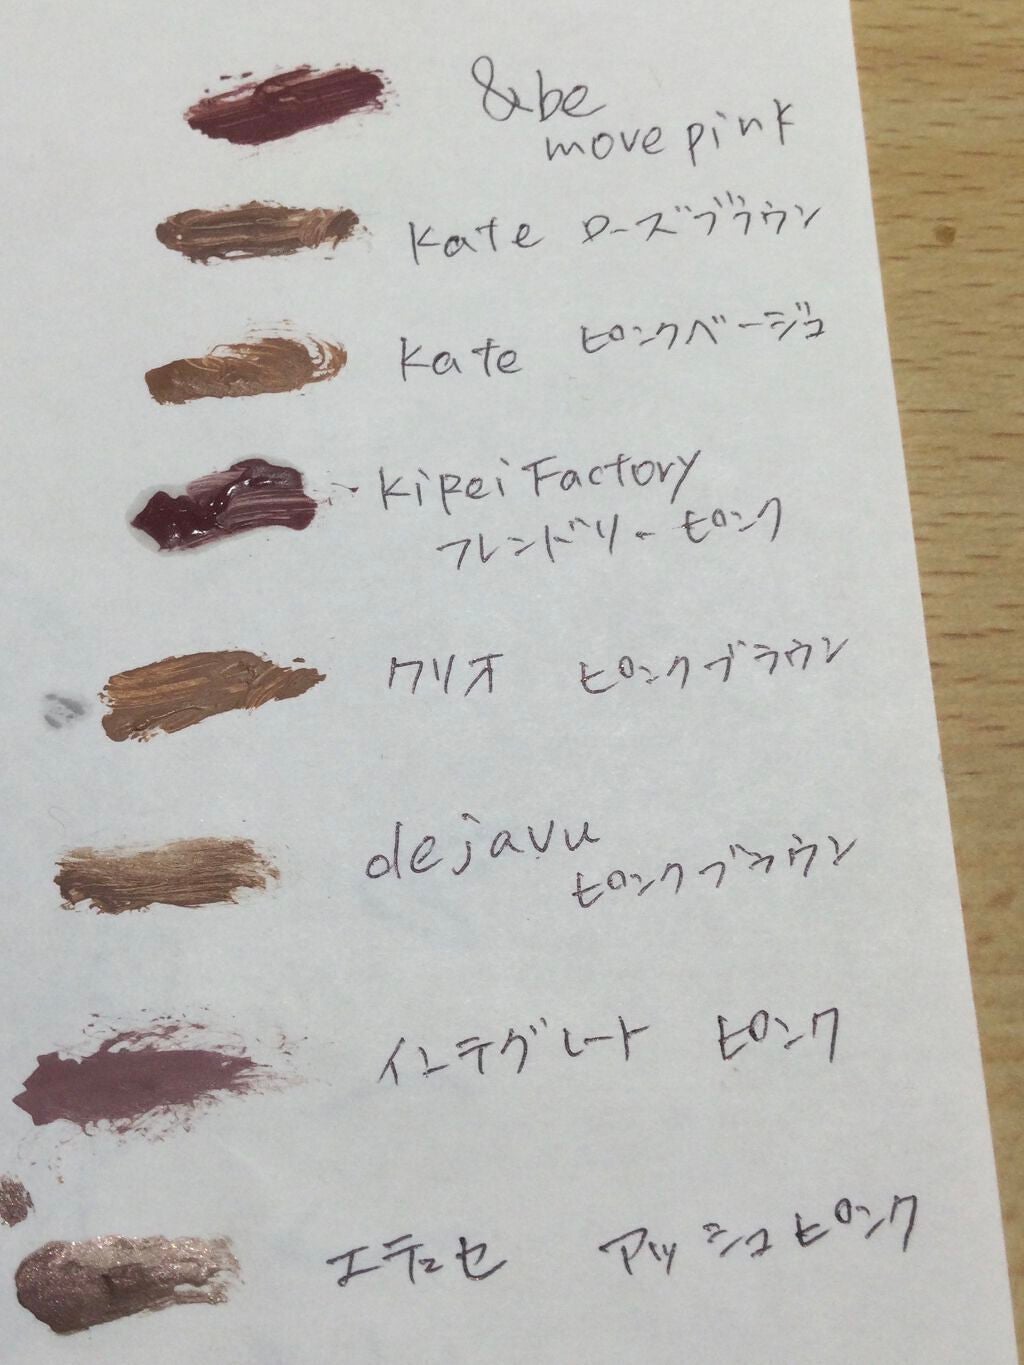 &be
move pink
Kate ローズブラウン
Kate ピンクベージュ
KiReiFactory
フレンドリーピンク
クリオ ピンクブラウン
dejavu
ピンクブラウン
インテグレート ピンク
エテュセ アッシュピンク